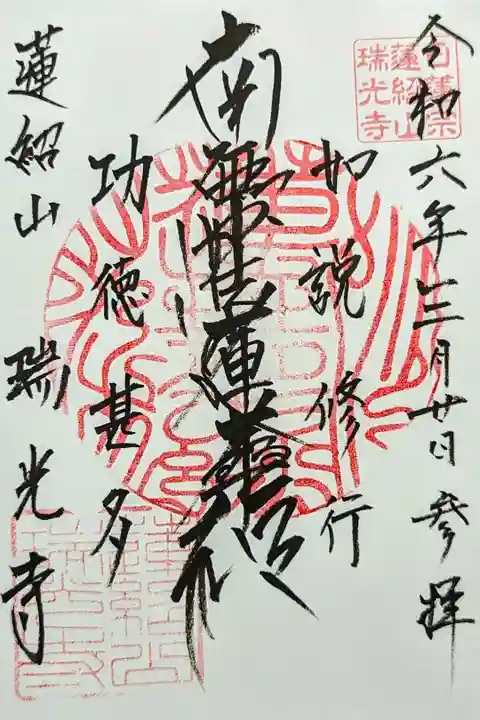 令和六年三月廿日参拝
日蓮宗
蓮紹山
瑞光寺
如説修行
南無妙法蓮華経
功徳甚多
蓮紹山 瑞光寺